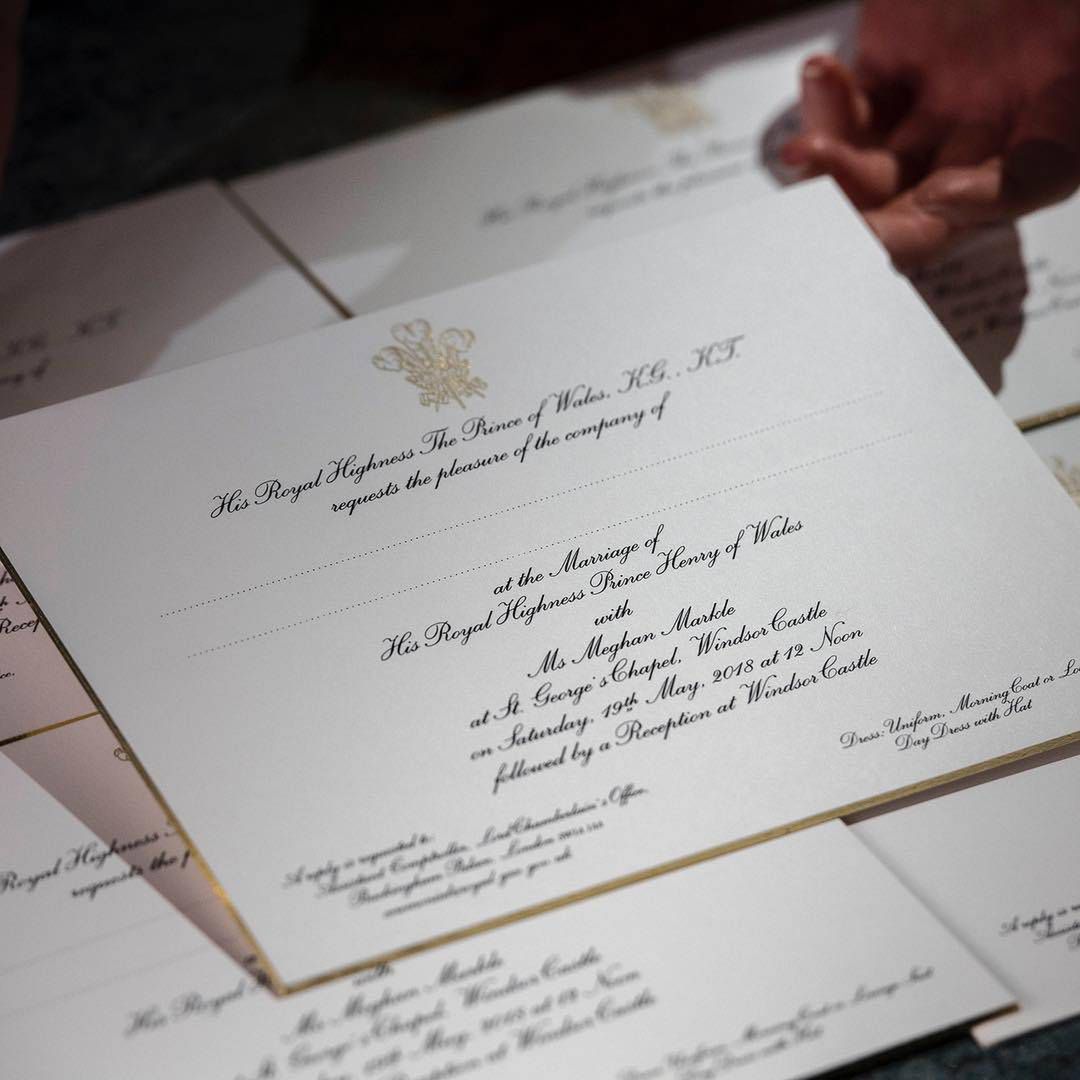 His Royal Highness The Prince of Wales, K.G., K.T.
requests the pleasure of the company of
at the Marriage of
His Royal Highness Prince Henry of Wales
with
Ms Meghan Markle
at St. George's Chapel, Windsor Castle
on Saturday, 19th May, 2018 at 12 Noon
followed by a Reception at Windsor Castle
Dress: Uniform, Morning Coat or
Day Dress with Hat
A reply is requested to:
Assistant Comptroller, Lord Chamberlain's Office,
Buckingham Palace, London
K.G., K.T.
Royal Highness
requests the
His Royal
with
Ms Meghan Markle
St. George's Chapel, Windsor Castle
19th May, 2018 at 12 Noon
Reception at Windsor Castle
Dress: Uniform, Morning Coat or Lounge Suit
Day Dress with Hat
A reply is
Assistant